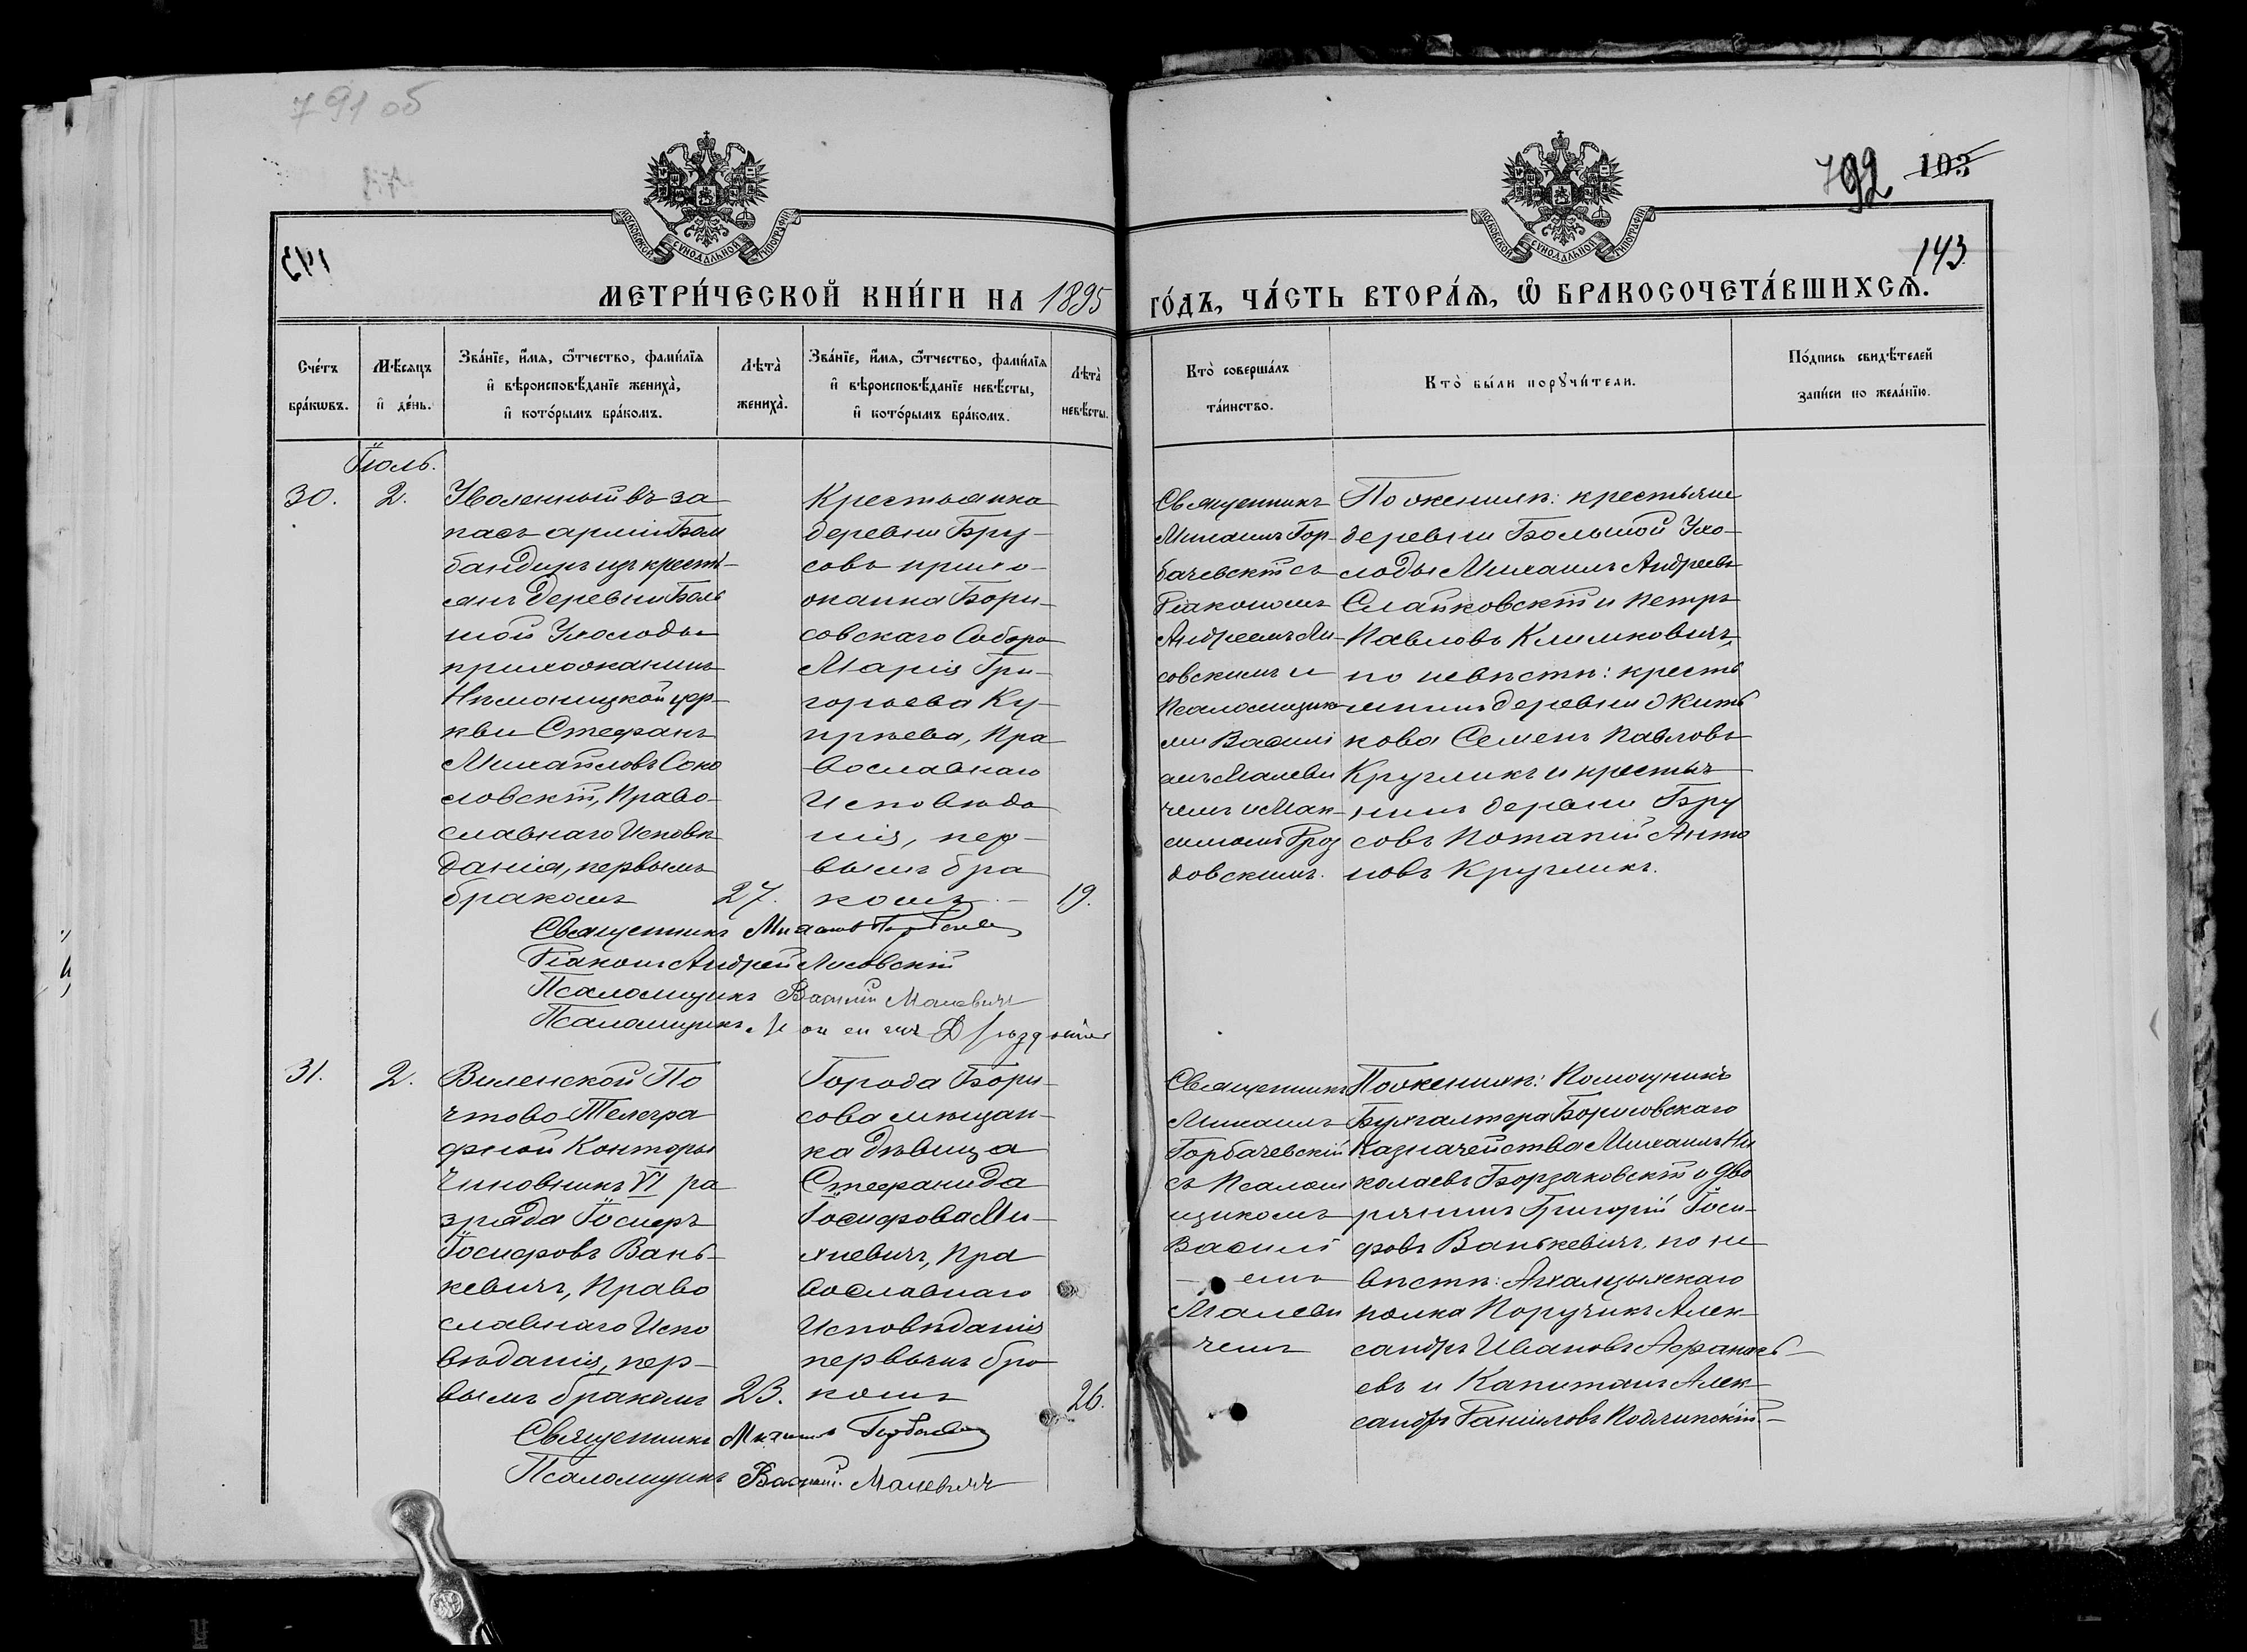 791 об
792 103
143
МОСКОВСКОЙ СѴНОДАЛЬНОЙ ТИПОГРАФІИ
МОСКОВСКОЙ СѴНОДАЛЬНОЙ ТИПОГРАФІИ
МЕТРИ́ЧЕСКОЙ КНИ́ГИ НА 1895 ГО́ДЪ, ЧА́СТЬ ВТОРА́Я, Ѡ҆ БРАКОСОЧЕТА́ВШИХСѦ.
Сче́тъ
бра́кѡвъ.
Мѣ́сяцъ
и҆ де́нь.
Зва́нїе, и҆́мя, ѻ҆́тчество, фами́лїя
и҆ вѣроисповѣ́данїе жениха̀,
и҆ кото́рымъ бра́комъ.
Лѣта̀
жениха̀.
Зва́нїе, и҆́мя, ѻ҆́тчество, фами́лїя
и҆ вѣроисповѣ́данїе невѣ́сты,
и҆ кото́рымъ бра́комъ.
Лѣта̀
невѣ́сты.
Кто̀ соверша́лъ
та́инство.
Кто̀ бы́ли порꙋчи́тели.
По́дпись свидѣ́телей
за́писи по жела́нїю.
Іюль.
30.
2.
Уволенный въ за
пасъ арміи Бом
бандиръ изъ крестъ-
янъ деревни Боль
шой Ухолоды
прихожанинъ
Нѣмоницкой цер-
кви Стефанъ
Михайловъ Соко
ловскій, Право-
славнаго Исповѣ
данія, первымъ
бракомъ
27.
Крестьянка
деревни Бру-
совъ прихо-
жанка Бори-
совскаго Собора
Марія Гри-
горьева Ку-
пріева, Пра
вославнаго
Исповѣда
нія, пер-
вымъ бра
комъ
19.
Священникъ
Михаилъ Гор-
бачевскій съ
Діакономъ
Андреемъ Ли-
совскимъ и
Псаломщика-
ми Василі
емъ Малеви
чемъ и Мак-
симомъ Дроз
довскимъ.
По женихѣ: крестьяне
деревни Большой Ухо-
лоды Михаилъ Андреевъ
Слайковскій и Петръ
Павловъ Климковичъ,
по невѣстѣ: кресть
янинъ деревни Жить
кова Семенъ Павловъ
Кругликъ и крестья
нинъ дерени Бру
совъ Потапій Анто
новъ Кругликъ.
Священникъ Михаилъ Горбачев
Діаконъ Андрей Лисовскій
Псаломщикъ Василій Малевичъ
Псаломщикъ
31.
2.
Виленской По
чтово-Телегра
фной Конторы
Чиновникъ VI ра
зряда Іосифъ
Іосифовъ Вань-
кевичъ, Право
славнаго Испо
вѣданія, пер-
вымъ бракомъ
23.
Города Бори-
сова мѣщан-
ка дѣвица
Стефанида
Іосифова Ми-
хневичъ, Пра
вославнаго
Исповѣданія
первымъ бра
комъ
26.
Священникъ
Михаилъ
Горбачевскій
съ Псалом
щикомъ
Василі
емъ
Малеви
чемъ
По женихѣ: Помощникъ
Бухгалтера Борисовскаго
Казначейства Михаилъ Ни
колаевъ Борзаковскій и дво
рянинъ Григорій Іоси-
фовъ Ванькевичъ, по не
вѣстѣ: Ахалцыхскаго
полка Поручикъ Алек-
сандръ Ивановъ Афанась-
евъ и Капитанъ Алек-
сандръ Даніиловъ Подлипскій.
Священникъ Михаилъ Горбачев
Псаломщикъ Василій Малевичъ